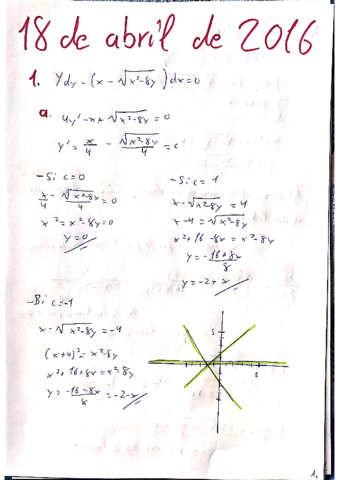 18 de abril de 2016
1. Ydy - (x - √x²-8y) dx = 0
a. 4y' - x + √x²-8y = 0
y' = x/4 - √x²-8y/4 = c
- Si c=0
x/4 - √x²-8y/4 = 0
x² = x²-8y = 0
y = 0
- Si c = 1
x - √x²-8y = 4
x - 4 = √x²-8y
x² + 16 - 8x = x² - 8y
y = - 16+8x/8
y = -2 + x
- Si c = -1
x - √x²-8y = -4
(x+4)² = x²-8y
x² + 16 + 8x = x² - 8y
y = -16-8x/8 = -2-x
5
5
1.